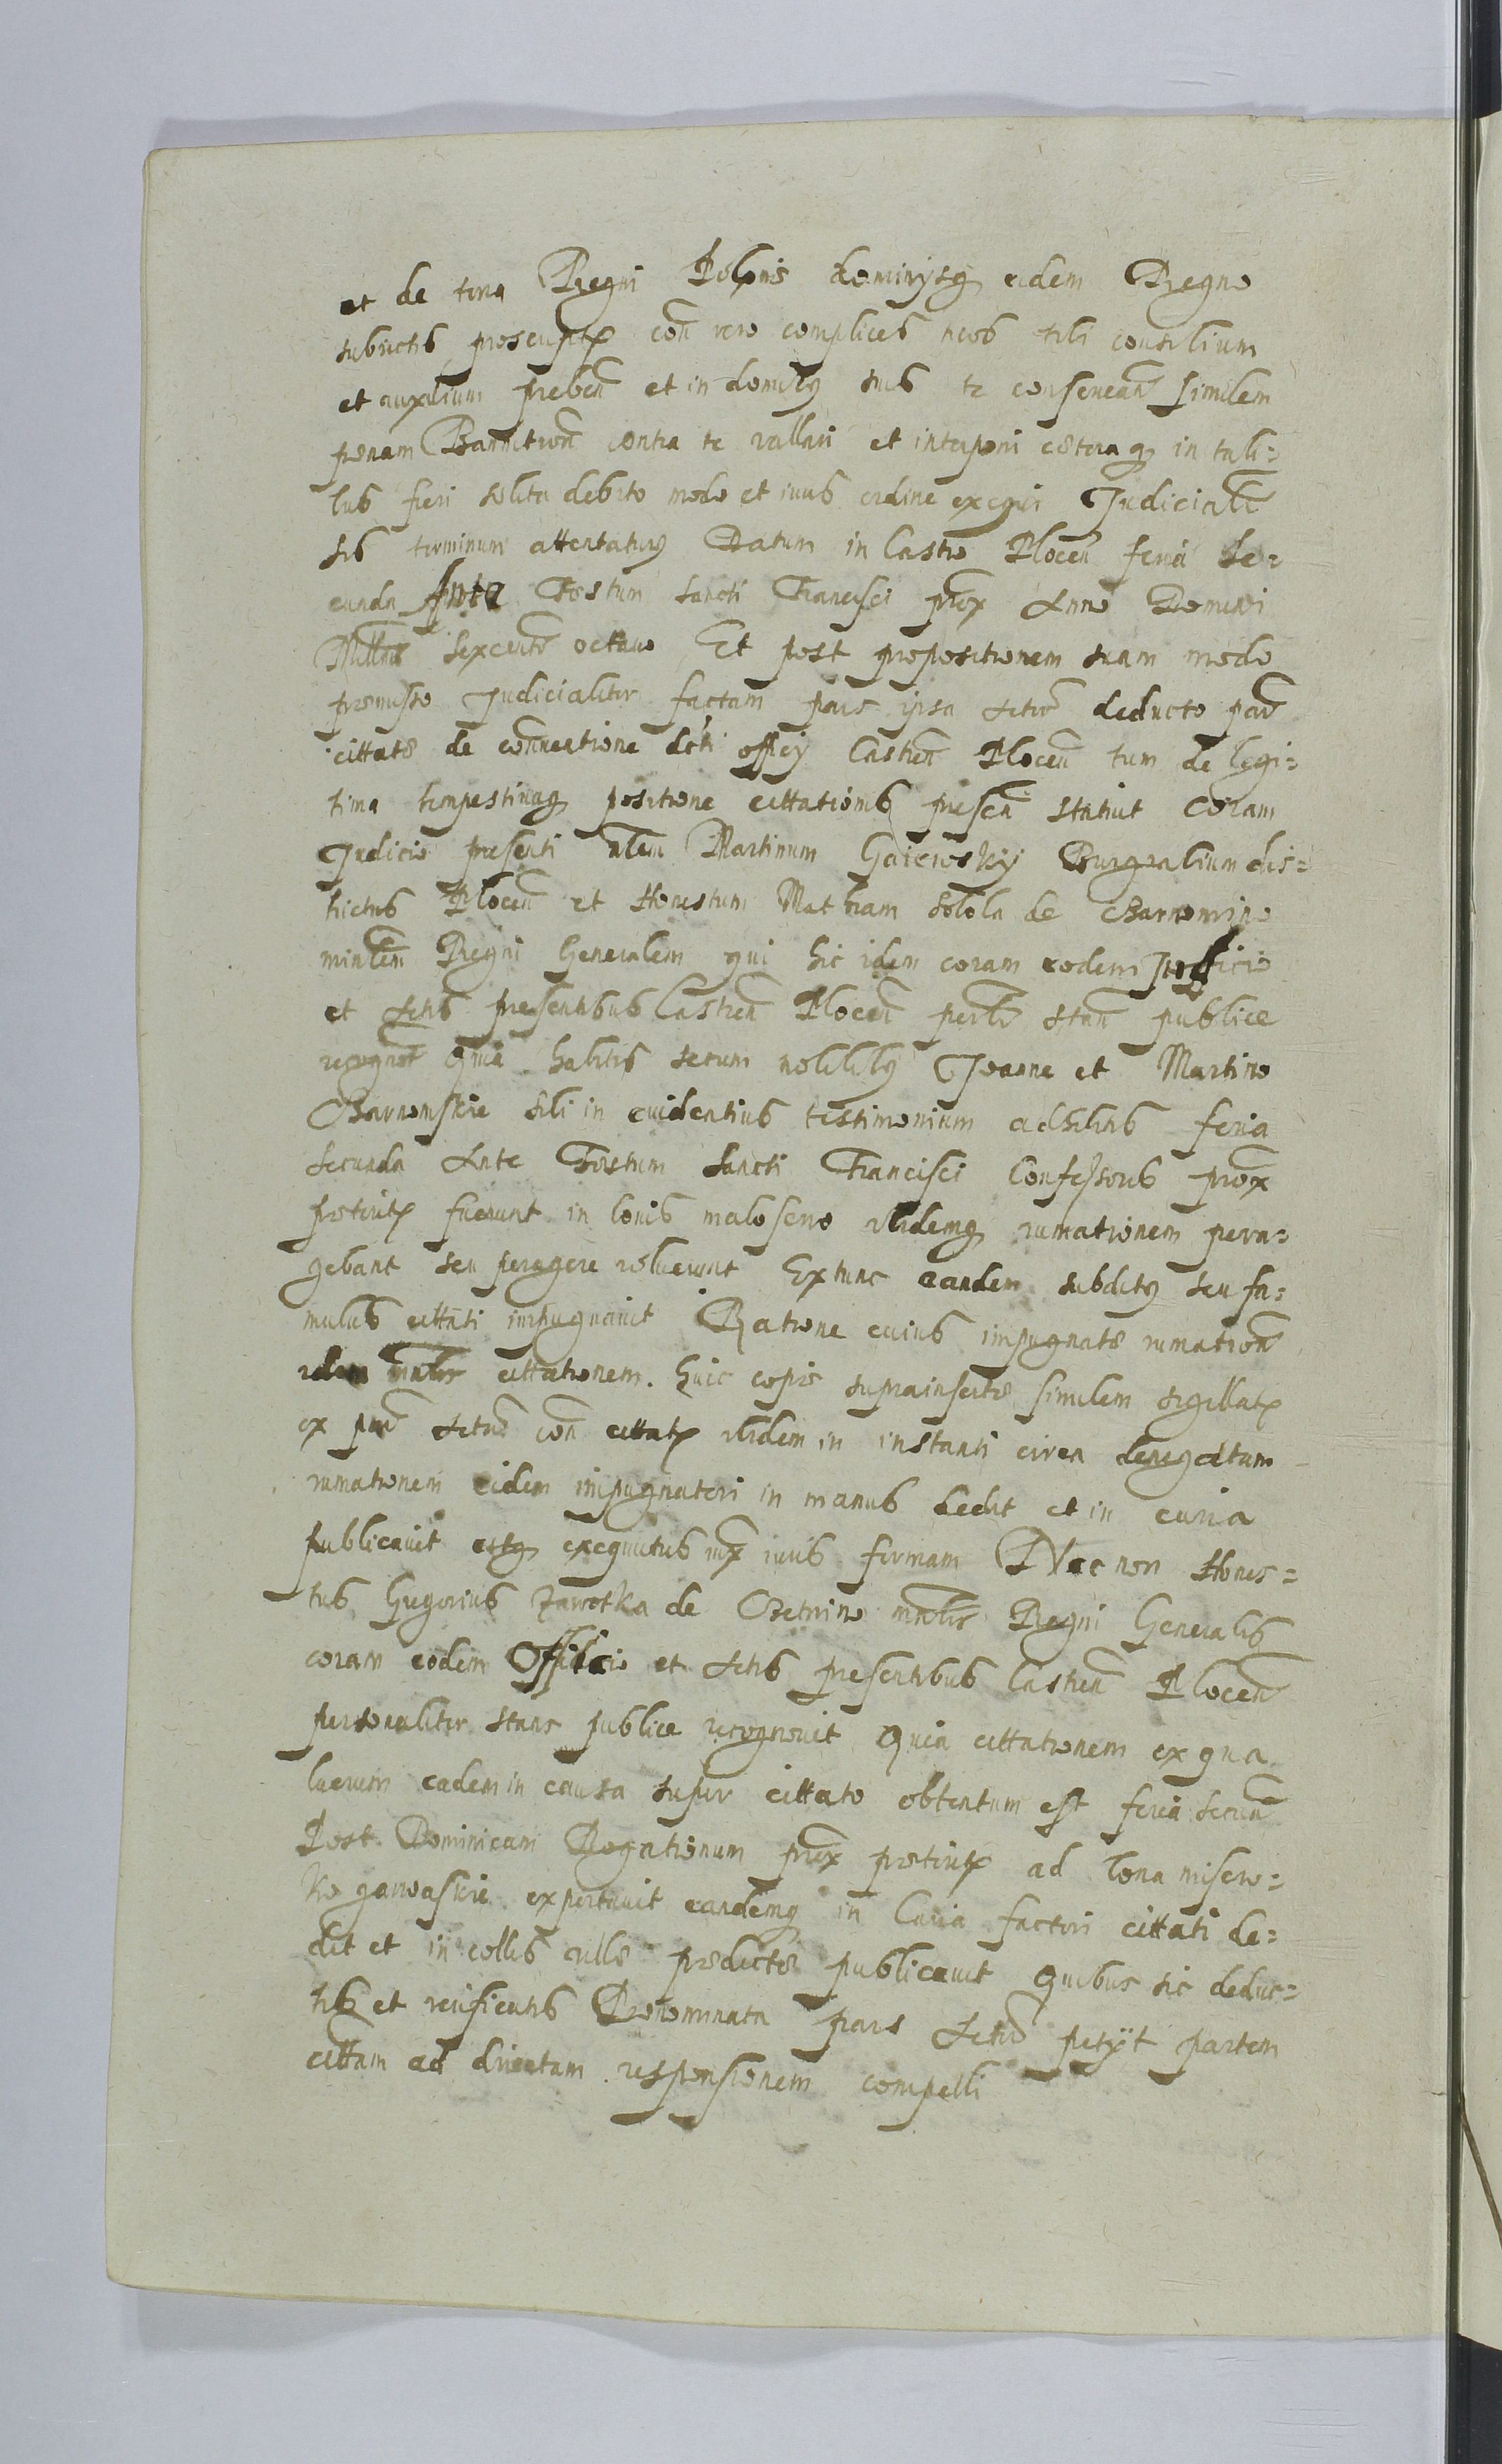 et de terra Regni Polonie dominÿsq eidem Regno
subiectis proscript con vero complices tuos tibi consilium
et auxilium preben et in domibq suis te conservean similem
penam Bannition contra te vallari et interponi ceteraq in tali=
bus fieri solita debito modo et iuris ordine exequi Judicialr
sis terminum attentaturq Datum in Castro Plocen feria se=
cunda Ante Festum Sancti Francisci prox Anno Domini
Millmo sexcento octavo Et post propositionem suam modo
premisso Judicialiter factam pars ipsa actor deducto par
cittate de connectione dcti officÿ Castren Plocen tum de legi=
tima tempestivaq positione cittationis presen statuit coram
Judicio presenti Martinum Gaiewskÿ Burgrabium dis=
trictus Plocen et Honestum Mathiam Sobola de Charnomino
minlem Regni Generalem qui hic idem coram eodem officio
et actis presentibus Castren Plocen perlr stan publice
recognot Quia habitis secum nobilibq Joanne et Martino
Charnomskie sibi in evidentius testimonium adhibitis feria
secunda Ante Festum Sancti Francisci Confessoris prox
preterit fuerunt in bonis maloseno ibidemq rumationem pera=
gebant seu peragere voluerunt Extunc eandem subditq seu fa=
mulus cittati impugnavit Ratione cuius impugnate rumation
idem minlis cittationem huic copie suprainserte similem sigillat
ex par actore con cittat ibidem in instanti circa denegatam
rumationem eidem impugnatori in manus dedit et in curia
publicavit estq exequutus iux iuris formam Nec non Hones=
tus Gregorius Jarotka de minlis Regni Generalis
coram eodem Officio et actis presentibus Castren Plocen
personaliter stans publice recognovit Quia cittationem ex qua
lucrum eadem in causa super cittato obtentum est feria secun
Post Dominicam Rogationum prox preterit ad bona misero=
exportavit eandemq in Curia factori cittati de=
dit et in collis ville predicte publicavit Quibus sic deduc=
tis et verificatis Prenominata pars actor petÿt partem
cittam ad directam responsionem compelli